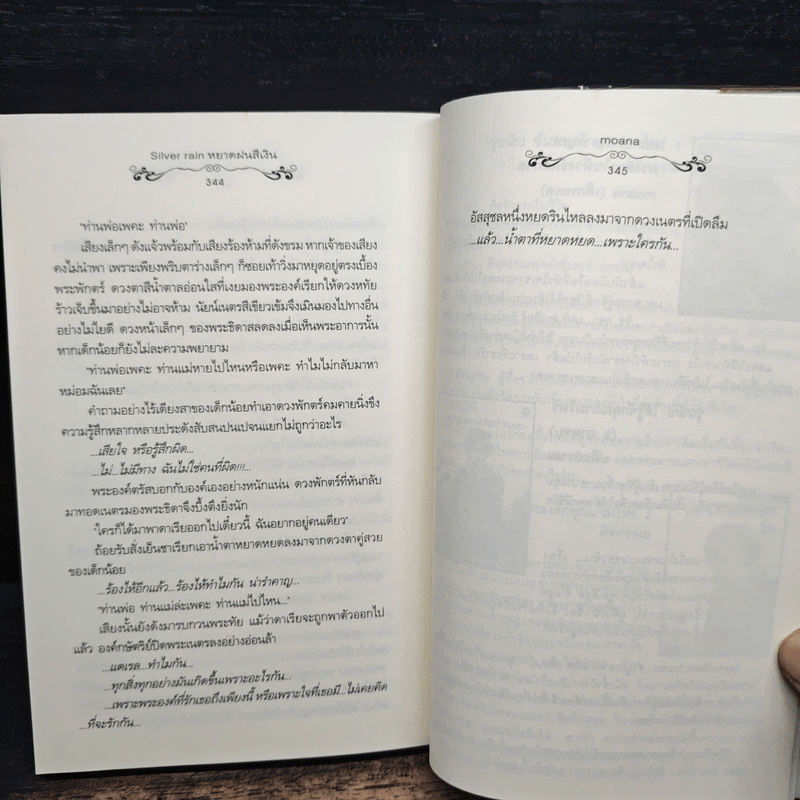 Silver rain หยาดฝนสีเงิน
344
"ท่านพ่อเพคะ ท่านพ่อ"
เสียงเล็กๆ ดังแจ้วพร้อมกับเสียงร้องห้ามที่ดังขรม หากเจ้าของเสียง
คงไม่นำพา เพราะเพียงพริบตาร่างเล็กๆ ก็ซอยเท้าวิ่งมาหยุดอยู่ตรงเบื้อง
พระพักตร์ ดวงตาสีน้ำตาลอ่อนใสที่เงยมองพระองค์เรียกให้ดวงหทัย
ร้าวเจ็บขึ้นมาอย่างไม่อาจห้าม นัยน์เนตรสีเขียวเข้มจึงเมินมองไปทางอื่น
อย่างไม่ไยดี ดวงหน้าเล็กๆ ของพระธิดาสลดลงเมื่อเห็นพระอาการนั้น
หากเด็กน้อยก็ยังไม่ละความพยายาม
"ท่านพ่อเพคะ ท่านแม่หายไปไหนหรือเพคะ ทำไมไม่กลับมาหา
หม่อมฉันเลย"
คำถามอย่างไร้เดียงสาของเด็กน้อยทำเอาดวงพักตร์คมคายนิ่งขึง
ความรู้สึกหลากหลายประดังสับสนปนเปจนแยกไม่ถูกว่าอะไร
...เสียใจ หรือรู้สึกผิด...
...ไม่...ไม่มีทาง ฉันไม่ใช่คนที่ผิด!!!...
พระองค์ตรัสบอกกับองค์เองอย่างหนักแน่น ดวงพักตร์ที่หันกลับ
มาทอดเนตรมองพระธิดาจึงบึ้งตึงยิ่งนัก
"ใครก็ได้มาพาดาเรียออกไปเดี๋ยวนี้ ฉันอยากอยู่คนเดียว"
ถ้อยรับสั่งเย็นชาเรียกเอาน้ำตาหยาดหยดลงมาจากดวงตาคู่สวย
ของเด็กน้อย
...ร้องไห้อีกแล้ว...ร้องไห้ทำไมกัน น่ารำคาญ...
"ท่านพ่อ ท่านแม่ล่ะเพคะ ท่านแม่ไปไหน..."
เสียงนั้นยังดังมารบกวนพระทัย แม้ว่าดาเรียจะถูกพาตัวออกไป
แล้ว องค์กษัตริย์ปิดพระเนตรลงอย่างอ่อนล้า
...แคเรล...ทำไมกัน...
...ทุกสิ่งทุกอย่างมันเกิดขึ้นเพราะอะไรกัน...
...เพราะพระองค์ที่รักเธอถึงเพียงนี้ หรือเพราะใจที่เธอมี...ไม่เคยคิด
...ที่จะรักกัน...
moana
345
อัสสุชลหนึ่งหยดรินไหลลงมาจากดวงเนตรที่เปิดลืม
...แล้ว...น้ำตาที่หยาดหยด...เพราะใครกัน...